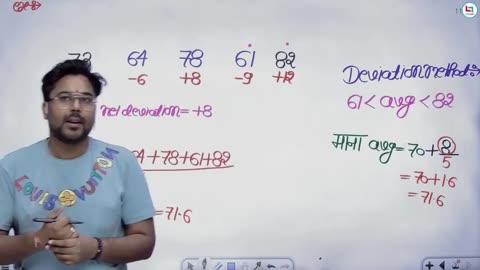 73 64 78 61 82
-6 +8 -9 +12
net deviation = +8
+78+61+82
= 71.6
Deviation method:-
61 < avg < 82
माना avg = 70 + 8/5
= 70 + 16
= 71.6